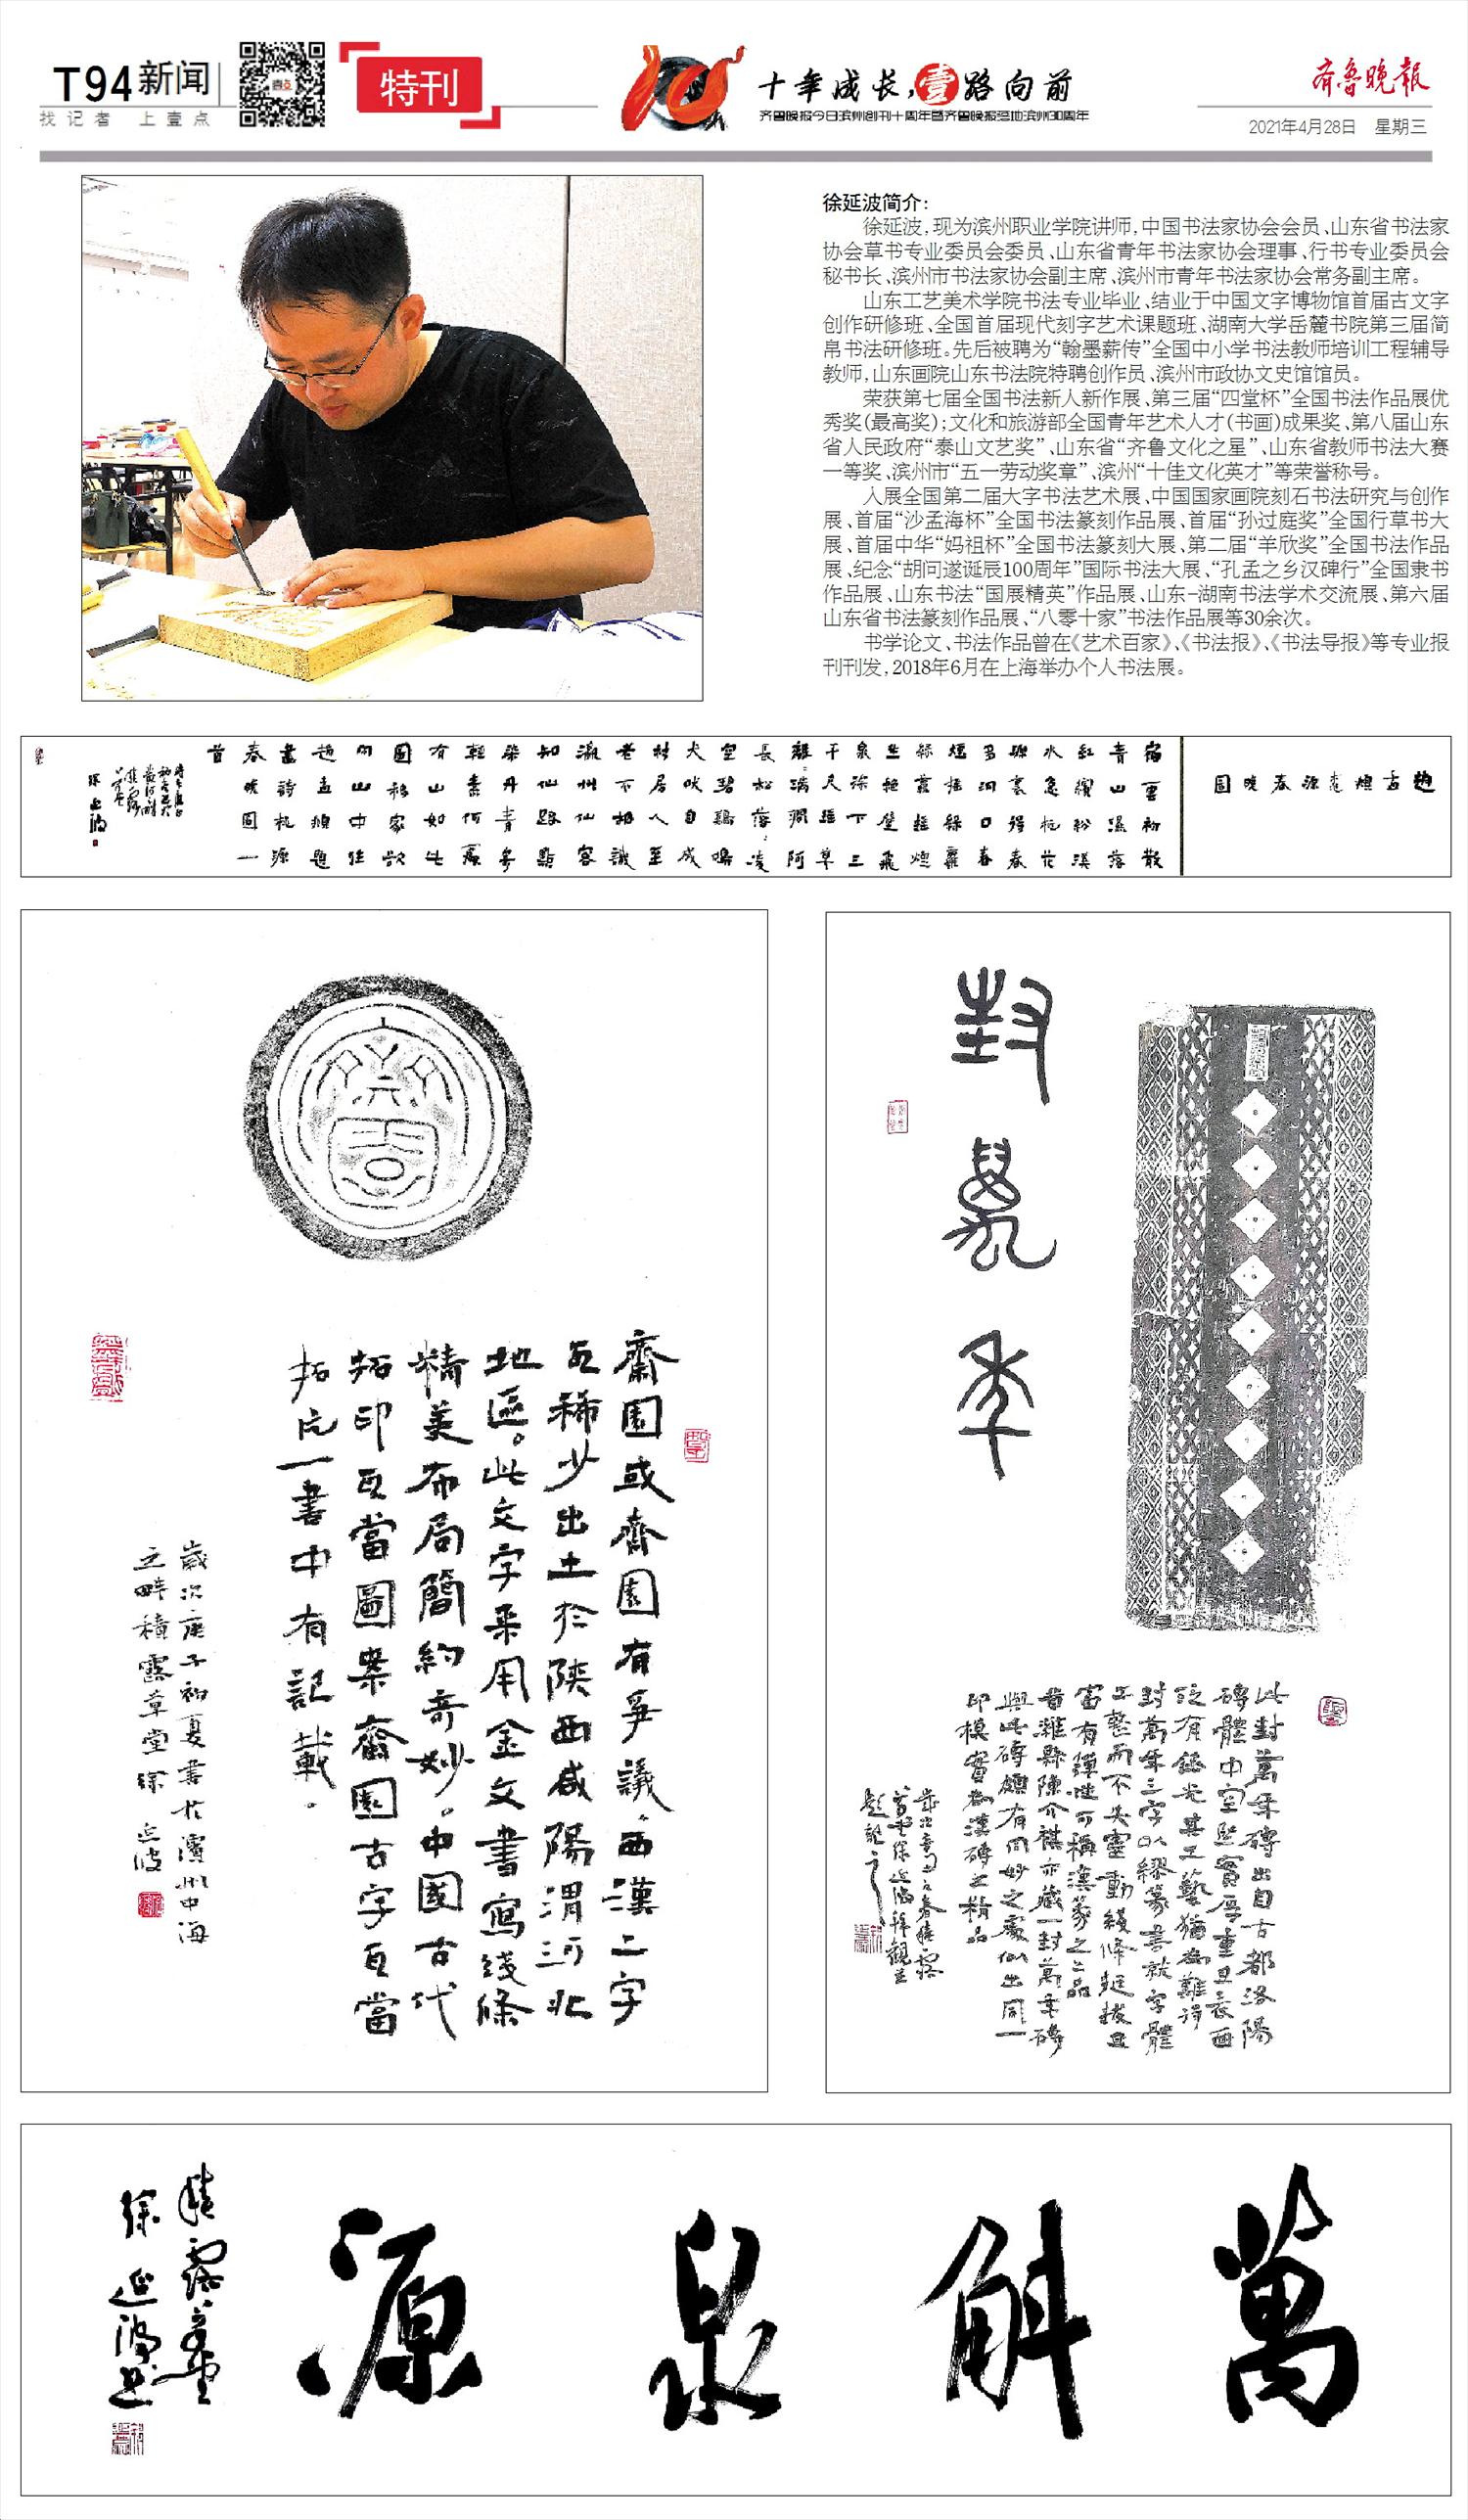 T94 新闻
找记者 上壹点
特刊
十年成长,壹路向前
齐鲁晚报今日滨州创刊十周年暨齐鲁晚报驻地滨州30周年
齐鲁晚报
2021年4月28日 星期三
徐延波简介:
徐延波,现为滨州职业学院讲师,中国书法家协会会员、山东省书法家
协会草书专业委员会委员、山东省青年书法家协会理事、行书专业委员会
秘书长、滨州市书法家协会副主席、滨州市青年书法家协会常务副主席。
山东工艺美术学院书法专业毕业、结业于中国文字博物馆首届古文字
创作研修班、全国首届现代刻字艺术课题班、湖南大学岳麓书院第三届简
帛书法研修班。先后被聘为“翰墨薪传”全国中小学书法教师培训工程辅导
教师,山东画院山东书法院特聘创作员、滨州市政协文史馆馆员。
荣获第七届全国书法新人新作展、第三届“四堂杯”全国书法作品展优
秀奖(最高奖);文化和旅游部全国青年艺术人才(书画)成果奖、第八届山东
省人民政府“泰山文艺奖”、山东省“齐鲁文化之星”、山东省教师书法大赛
一等奖、滨州市“五一劳动奖章”、滨州“十佳文化英才”等荣誉称号。
入展全国第二届大字书法艺术展、中国国家画院刻石书法研究与创作
展、首届“沙孟海杯”全国书法篆刻作品展、首届“孙过庭奖”全国行草书大
展、首届中华“妈祖杯”全国书法篆刻大展、第二届“羊欣奖”全国书法作品
展、纪念“胡问遂诞辰100周年”国际书法大展、“孔孟之乡汉碑行”全国隶书
作品展、山东书法“国展精英”作品展、山东-湖南书法学术交流展、第六届
山东省书法篆刻作品展、“八零十家”书法作品展等30余次。
书学论文、书法作品曾在《艺术百家》、《书法报》、《书法导报》等专业报
刊刊发,2018年6月在上海举办个人书法展。
宿雲初散
青山濕落
紅繽紛溪
水急桃花
源裏得春
多洞口春
煙搖綠蘿
綠蘿搖煙
些絕壁飛
泉徐下三
千尺瑶草
離離滿澗阿
長松落落凌
空碧鷄鳴
犬吠自成
村居人至
老不相識
瀛州仙客
知仙路點
染丹青寄
輕素何處
有山如此
圖移家欲
向山中住
趙孟頫題
畫詩桃源
春曉圖一
首
齋園或齋園有爭議。西漢二字
瓦稀少出土於陝西咸陽渭河北
地區。此文字采用金文書寫綫條
精美布局簡約奇妙。中國古代
拓印瓦當圖案齋園古字瓦當
拓片一書中有記載。
歲次庚子初夏書於濱州中海
之畔積露草堂徐延波
封萬年
此封萬年磚出自古都洛陽
磚體中空堅實厚重且表面
泛有銀光其工藝猶為難得
封萬年三字以繆篆書就字體
工整而不失靈動綫條挺拔且
富有彈性可稱漢篆之上品
昔濰縣陳介祺亦藏一封萬年磚
與此磚頗有同妙之處似出同一
印模實為漢磚之精品
萬斛泉源
積露草堂
徐延波書